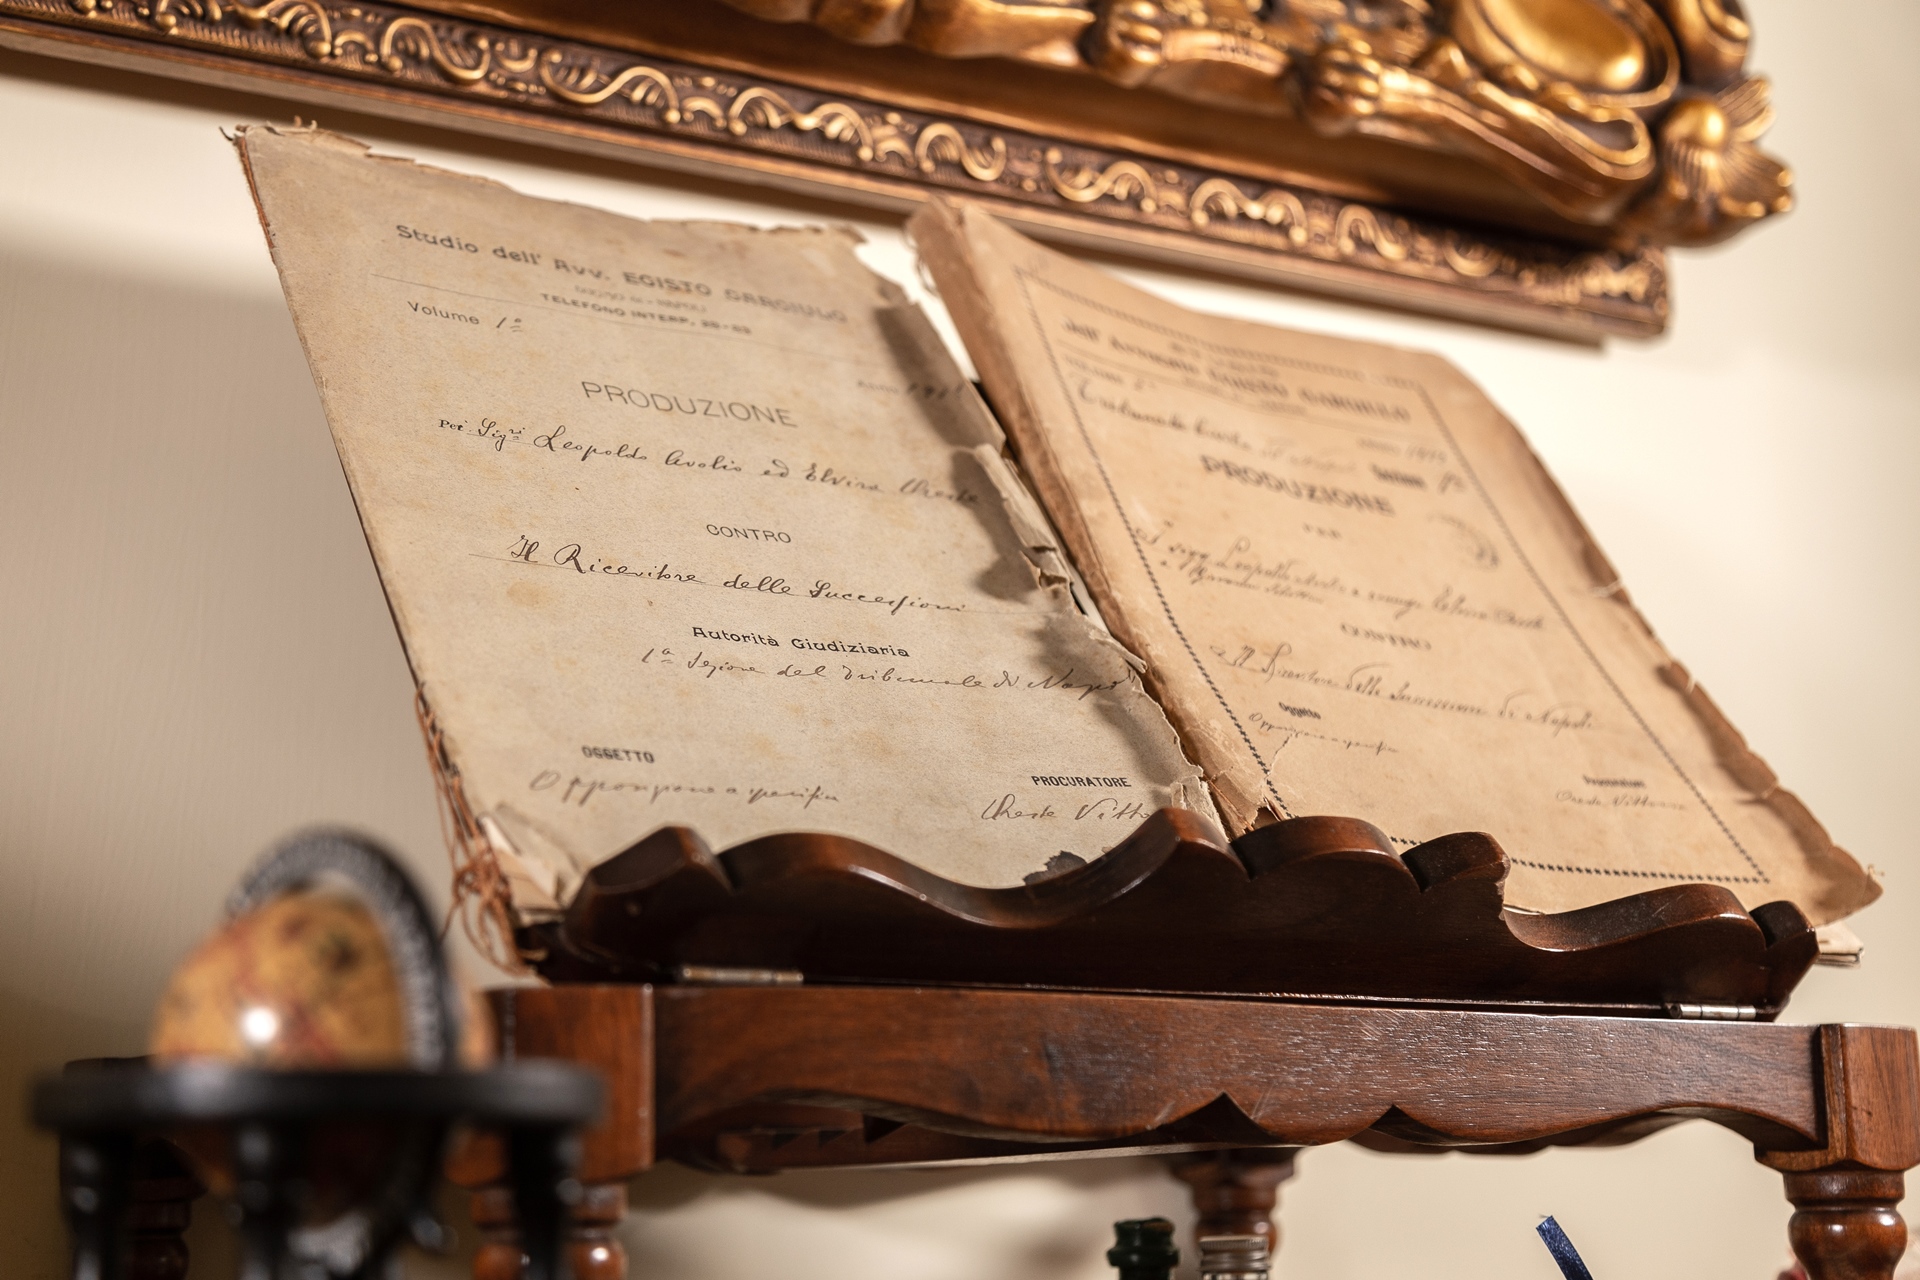 Studio dell' Avv. EGISTO GARGIULO
TELEFONO INTERP. 28-63
Volume 1º
Anno 191
PRODUZIONE
Pei Sigri Leopoldo Avolio ed Elvira Oreste
CONTRO
Il Ricevitore delle Successioni
Autorità Giudiziaria
1ª Sezione del Tribunale di Napoli
OGGETTO
Opposizione a perizia
PROCURATORE
Oreste Vitto
dell' Avvocato EGISTO GARGIULO
Tribunale Civile di Napoli
PRODUZIONE
PER
I sigg. Leopoldo Avolio e coniuge Elvira Oreste
CONTRO
Il Ricevitore delle Successioni di Napoli
Oggetto
Opposizione a perizia
Procuratore
Oreste Vittorio